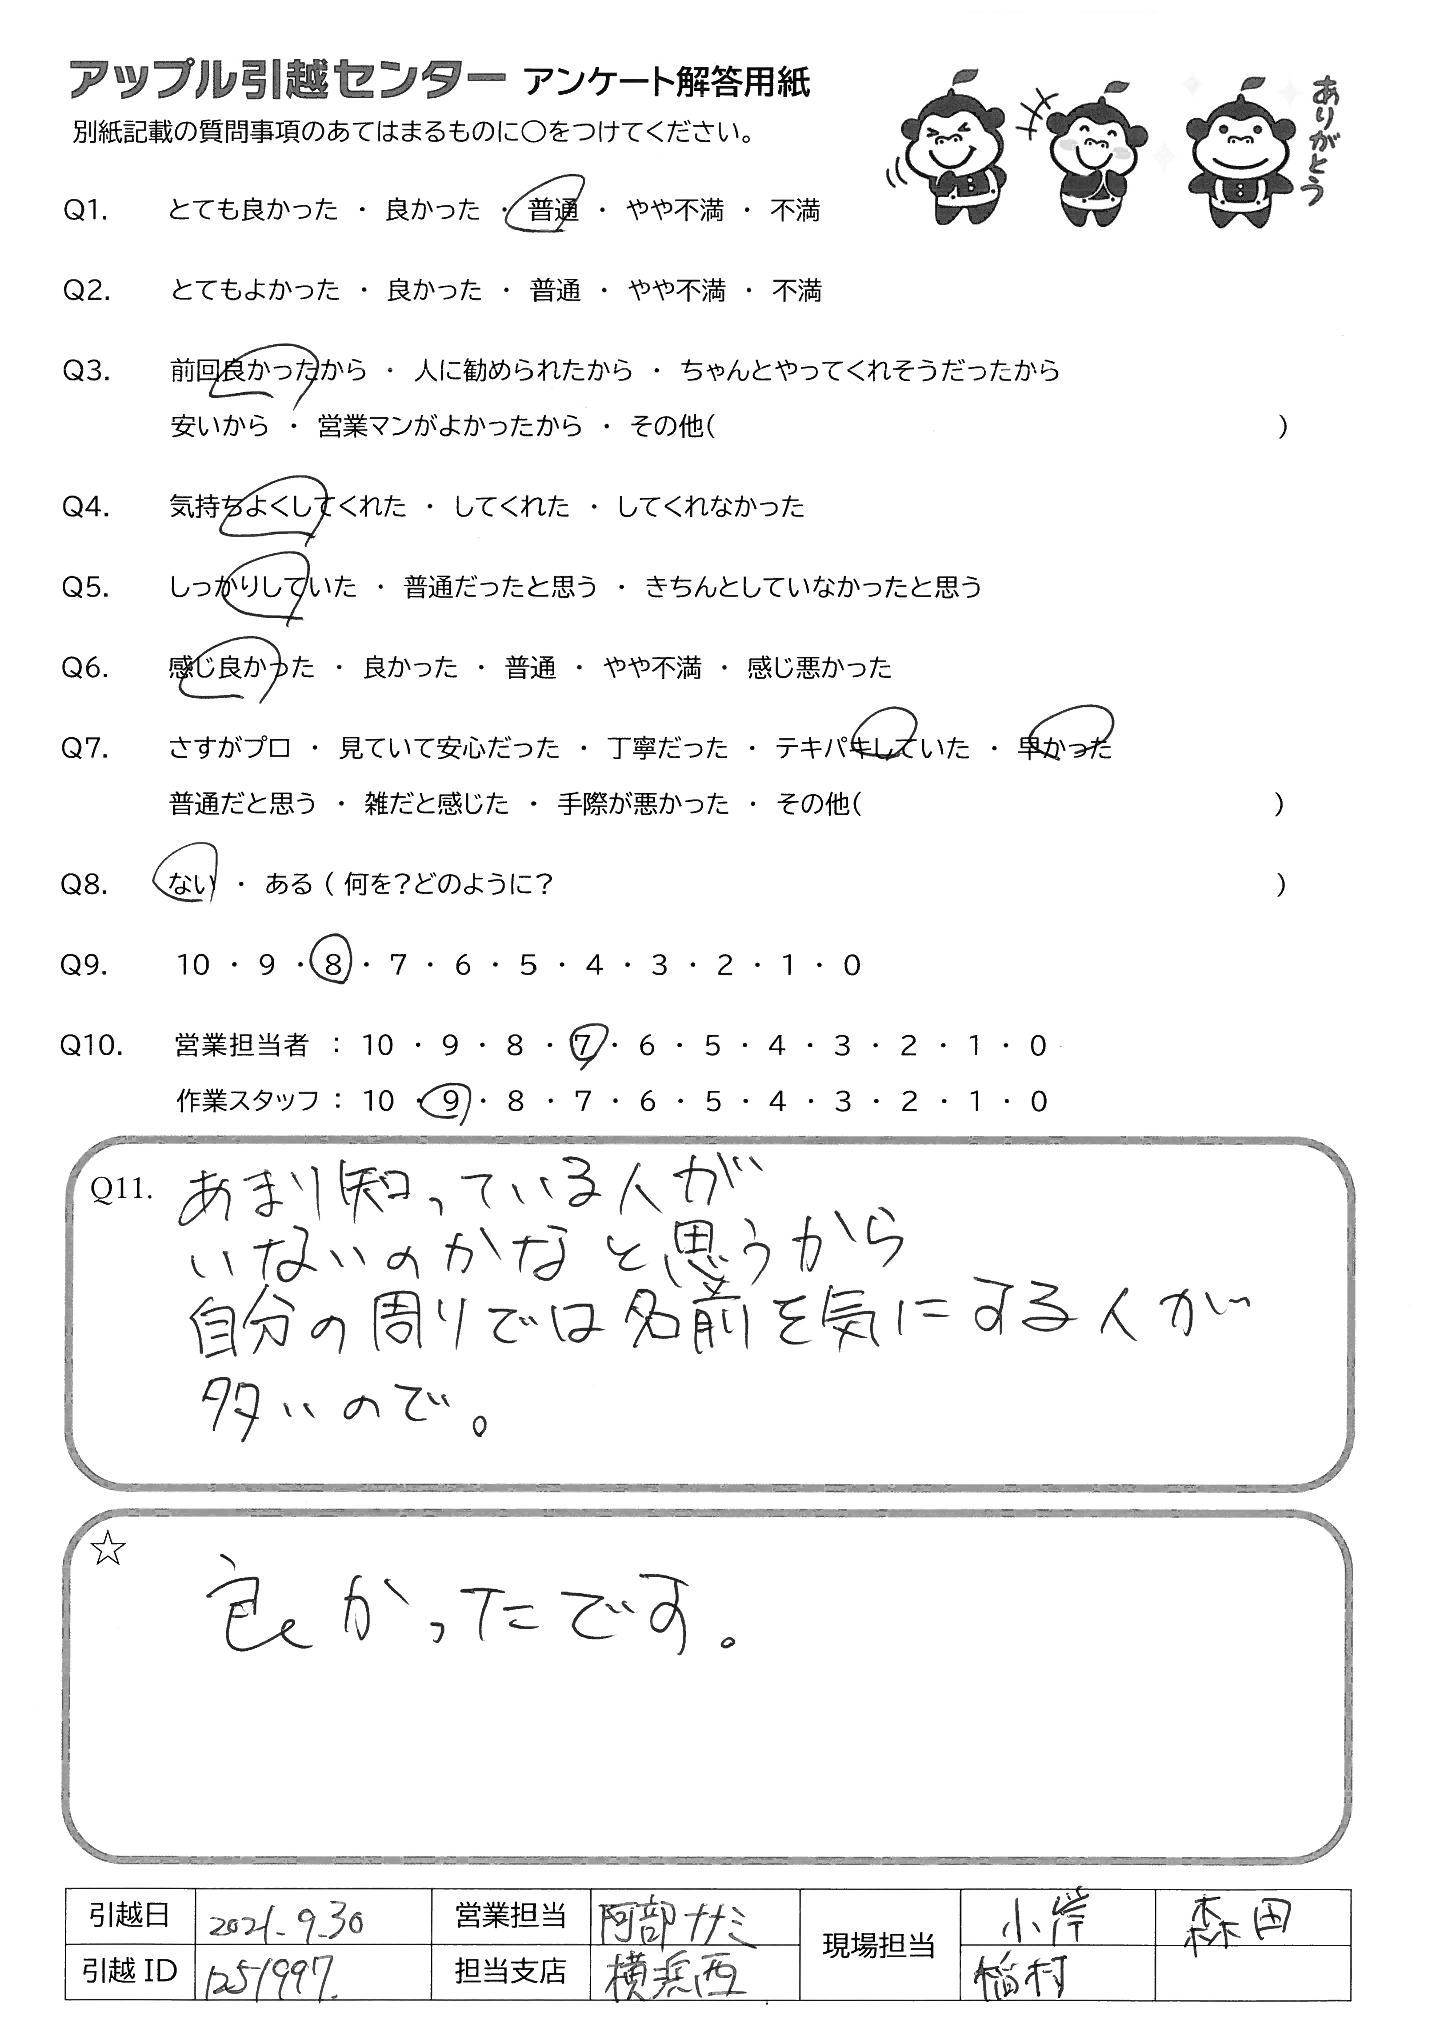 アップル引越センター アンケート解答用紙
別紙記載の質問事項のあてはまるものに○をつけてください。
ありがとう
Q1. とても良かった ・ 良かった ・ 普通 ・ やや不満 ・ 不満
Q2. とてもよかった ・ 良かった ・ 普通 ・ やや不満 ・ 不満
Q3. 前回良かったから ・ 人に勧められたから ・ ちゃんとやってくれそうだったから
安いから ・ 営業マンがよかったから ・ その他( )
Q4. 気持ちよくしてくれた ・ してくれた ・ してくれなかった
Q5. しっかりしていた ・ 普通だったと思う ・ きちんとしていなかったと思う
Q6. 感じ良かった ・ 良かった ・ 普通 ・ やや不満 ・ 感じ悪かった
Q7. さすがプロ ・ 見ていて安心だった ・ 丁寧だった ・ テキパキしていた ・ 早かった
普通だと思う ・ 雑だと感じた ・ 手際が悪かった ・ その他( )
Q8. ない ・ ある ( 何を?どのように? )
Q9. 10 ・ 9 ・ 8 ・ 7 ・ 6 ・ 5 ・ 4 ・ 3 ・ 2 ・ 1 ・ 0
Q10. 営業担当者 : 10 ・ 9 ・ 8 ・ 7 ・ 6 ・ 5 ・ 4 ・ 3 ・ 2 ・ 1 ・ 0
作業スタッフ : 10 ・ 9 ・ 8 ・ 7 ・ 6 ・ 5 ・ 4 ・ 3 ・ 2 ・ 1 ・ 0
Q11. あまり知っている人が
いないのかなと思うから
自分の周りでは名前を気にする人が
多いので。
☆
良かったです。
引越日 2021.9.30 営業担当 阿部ナナミ 現場担当 小岸 森田
引越ID 1251997. 担当支店 横浜西 稲村